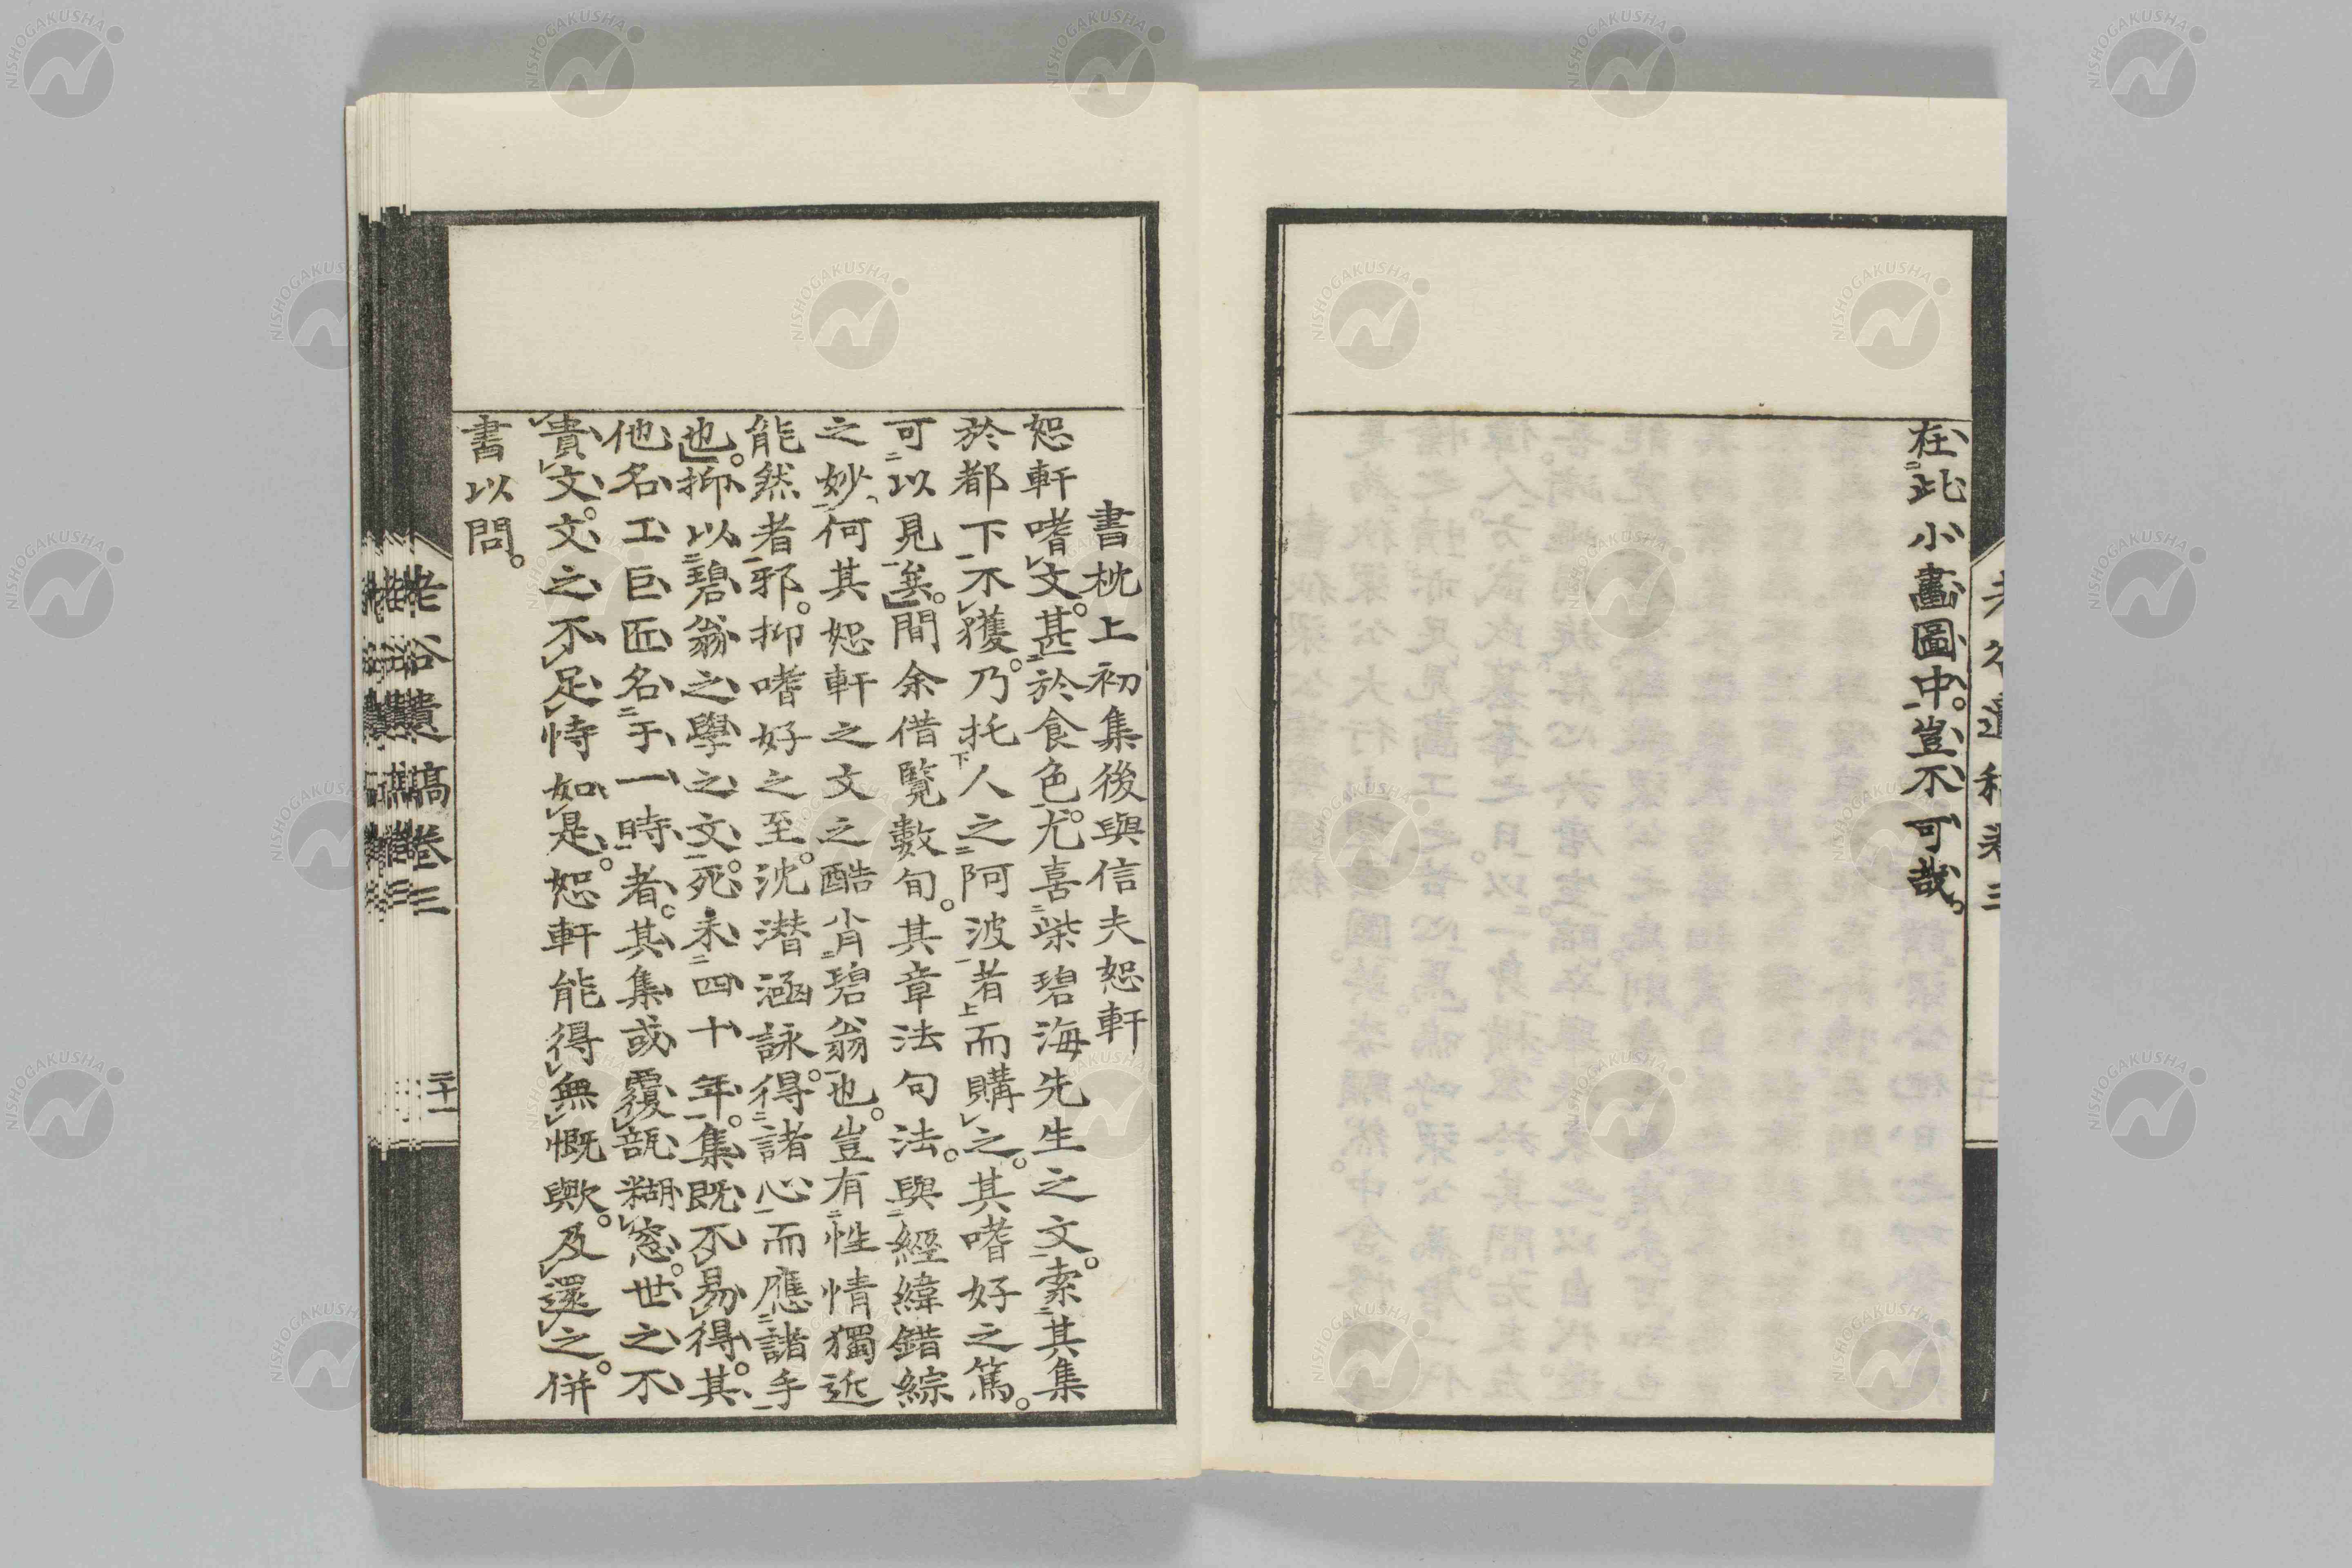 在此小畵圖中。豈不可哉。
書枕上初集後與信夫恕軒
恕軒嗜文。甚於食色。尤喜柴碧海先生之文。索其集
於都下不獲。乃托人之阿波者而購之。其嗜好之篤。
可以見矣。間余借覽數旬。其章法句法。與經緯錯綜
之妙、何其恕軒之文之酷肖碧翁也。豈有性情獨近
能然者邪。抑嗜好之至。沈潛涵詠。得諸心而應諸手
也。抑以碧翁之學之文。死未四十年。集既不易得。其
他名工巨匠名于一時者。其集或覆瓿糊窓。世之不
貴文。文之不足恃如是。恕軒能得無慨歟。及還之。併
書以問。
老谷遺稿卷三
二十一
NISHOGAKUSHA